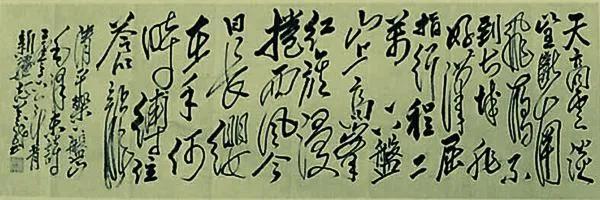 天高雲淡
望斷南
飛雁不
到長城非
好漢屈
指行程二
萬 六盤
山上高峯
紅旗漫
捲西風今
日長纓
在手何
時縛住
蒼龍
清平樂六盤山
毛澤東詩
新疆